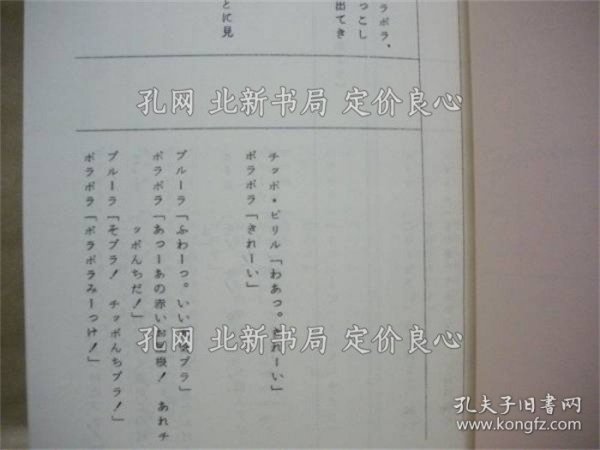 ラボラ、
っこし
出てき
とに見
チッポ・ピリル「わあっ。きれーい」
ボラボラ「きれーい」
ブルーラ「ふわーっ。いい
ブラ」
ボラボラ「あっーあの赤いお
機！　あれチ
ッポんちだ！」
ブルーラ「そブラ！　チッポんちブラ！」
ボラボラ「ボラボラみーっけ！」
孔网 北新书局 定价良心
孔网 北新书局 定价良心
孔网 北新书局 定价良心
孔夫子旧书网
www.kongfz.com